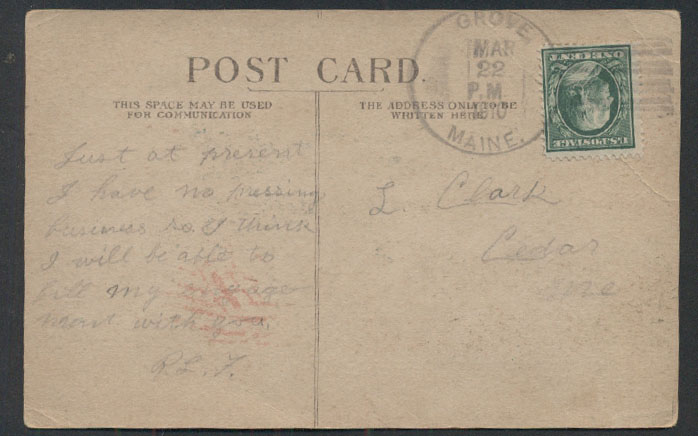 POST CARD.
THIS SPACE MAY BE USED
FOR COMMUNICATION
THE ADDRESS ONLY TO BE
WRITTEN HERE.
GROVE,
MAR
22
P.M.
1910
MAINE.
U.S. POSTAGE
ONE CENT
Just at present
I have no pressing
business so I think
I will be able to
fill my engage
ment with you.
L. Clark
Cedar
Me